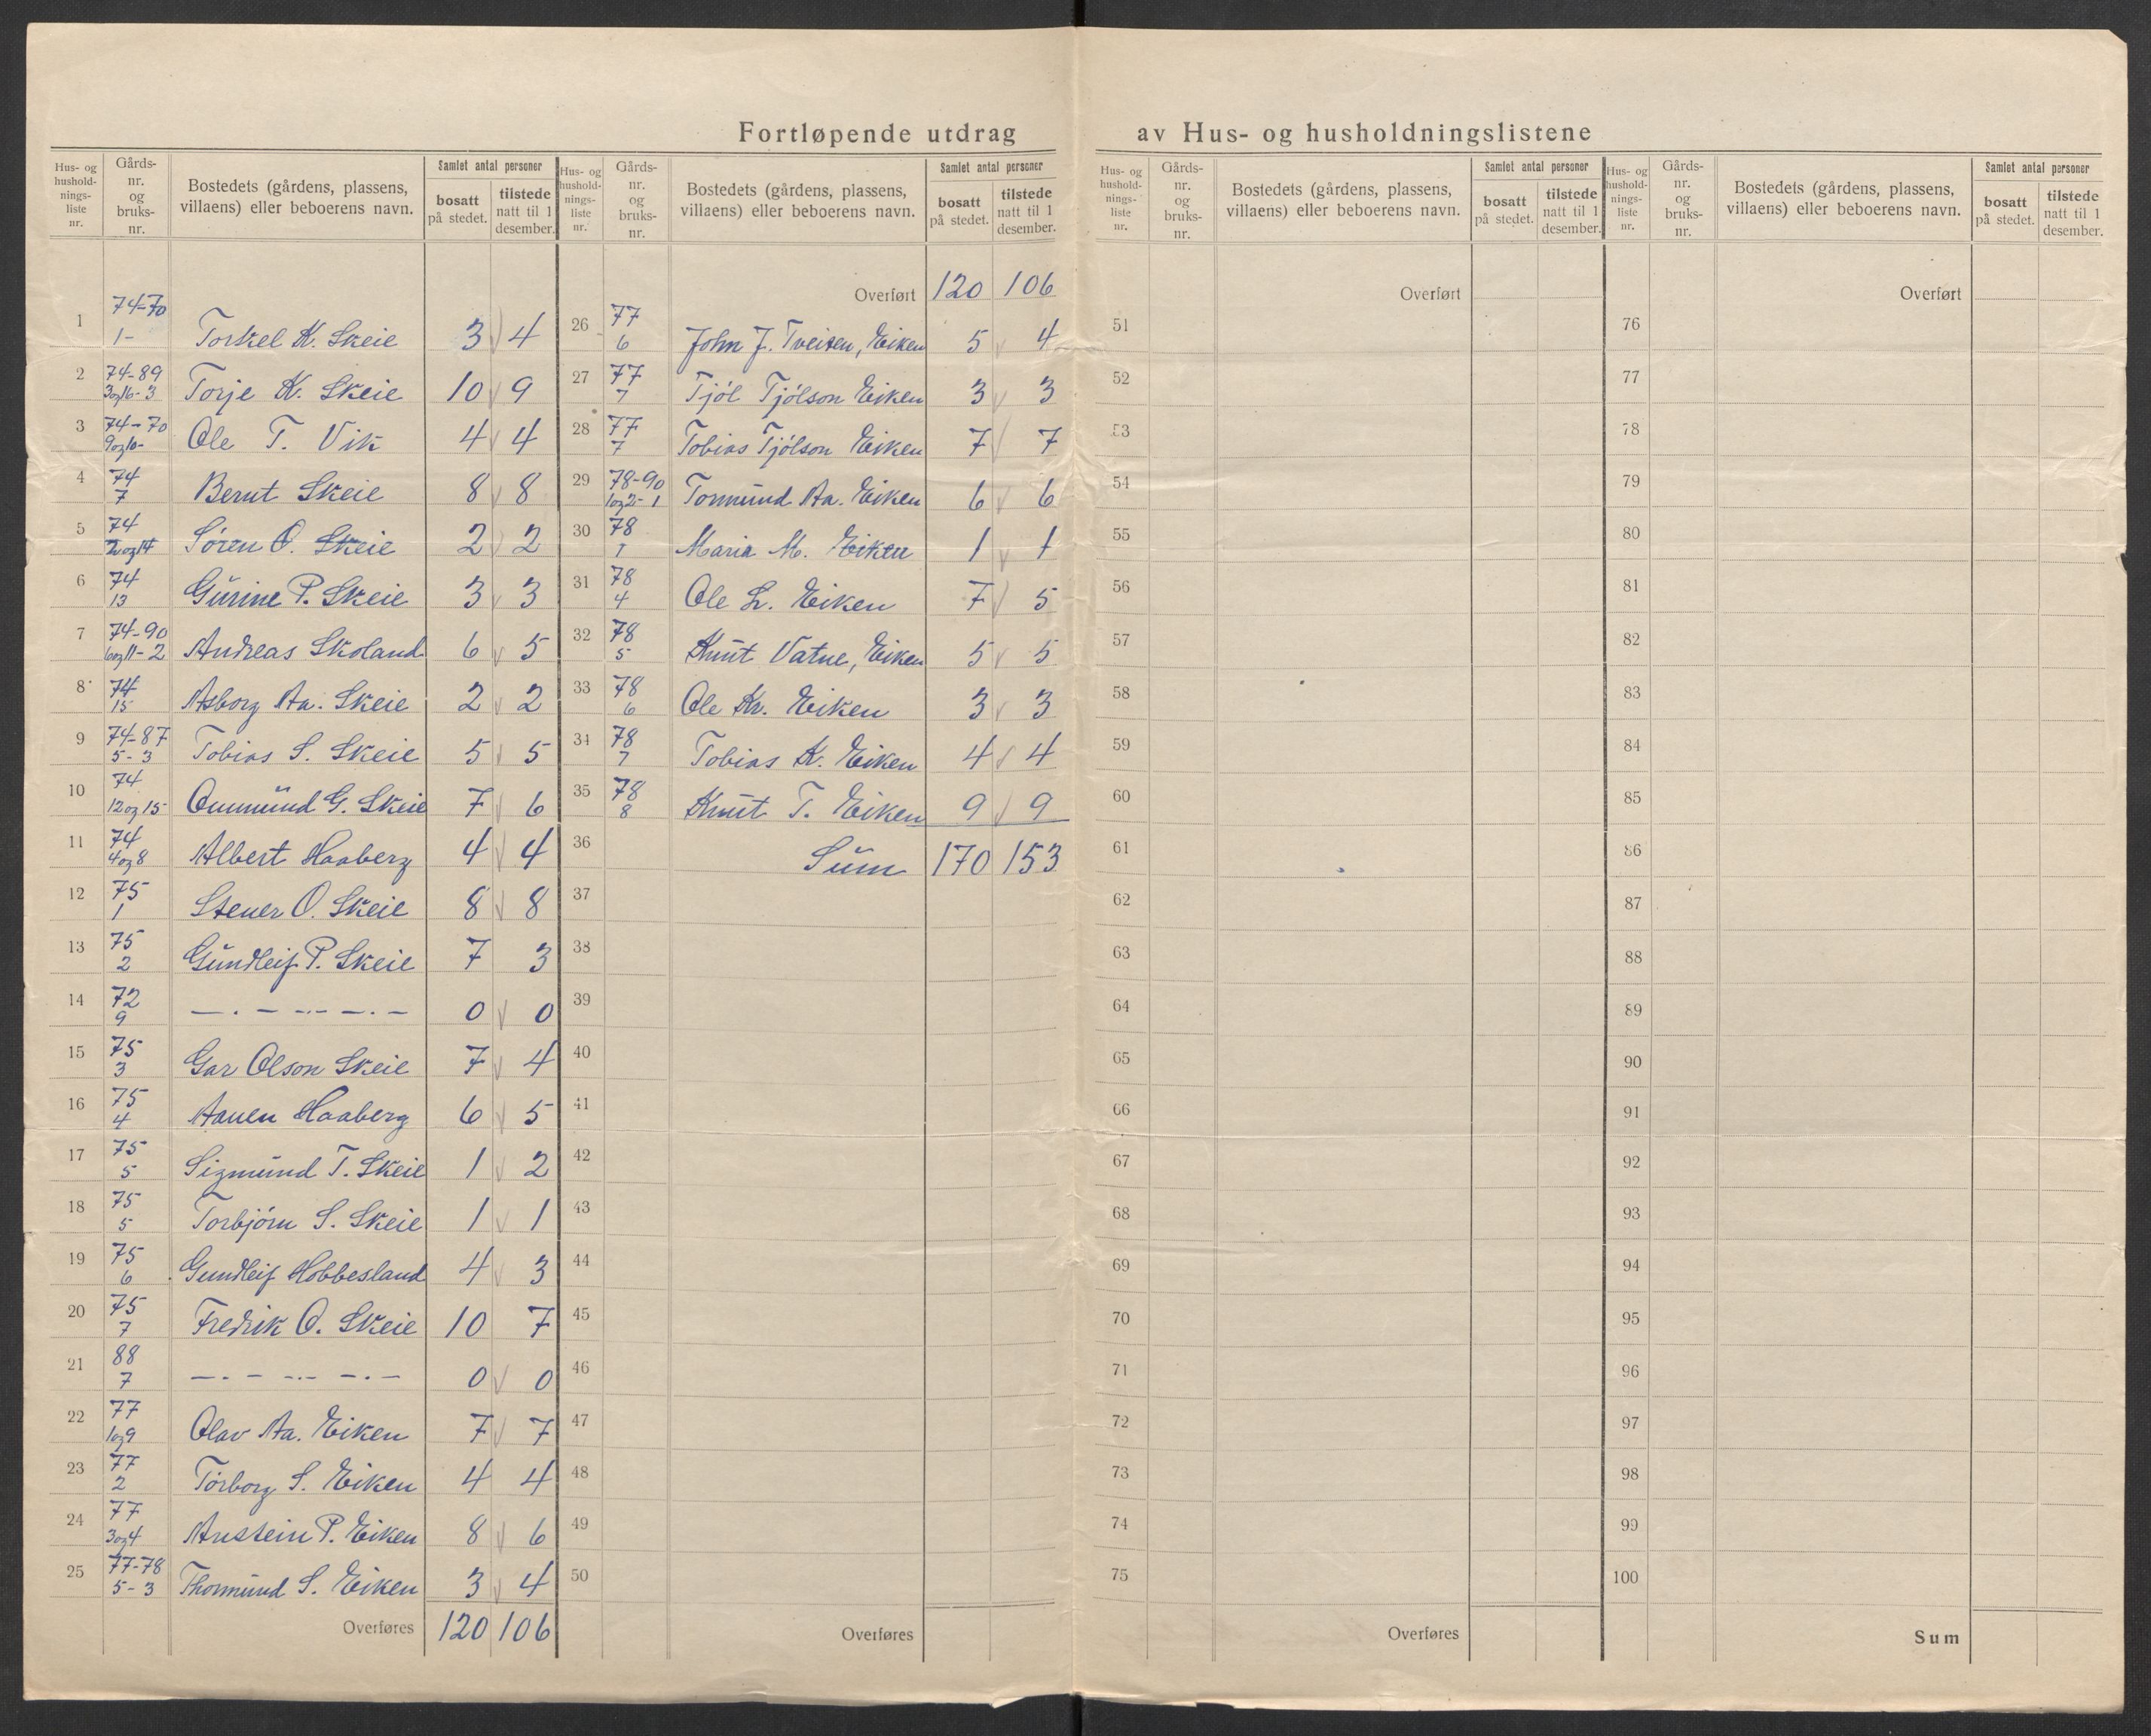 Fortløpende utdrag av Hus- og husholdningslistene
Hus- og hushold-nings-liste nr. Gårds-nr. og bruks-nr. Bostedets (gårdens, plassens, villaens) eller beboerens navn. Samlet antal personer bosatt på stedet. tilstede natt til 1 desember.
1 74-70 1- Torkel K. Skeie 3 4
2 74-89 3og16-3 Torje K. Skeie 10 9
3 74-70 9og10- Ole T. Vik 4 4
4 74 7 Bernt Skeie 8 8
5 74 2og14 Søren O. Skeie 2 2
6 74 13 Gurine P. Skeie 3 3
7 74-90 6og11-2 Andreas Skoland 6 5
8 74 15 Asborg Aa. Skeie 2 2
9 74-87 5-3 Tobias S. Skeie 5 5
10 74 12og15 Ommund G. Skeie 7 6
11 74 4og8 Albert Haaberg 4 4
12 75 1 Stener O. Skeie 8 8
13 75 2 Gundleif P. Skeie 7 3
14 72 9 —.— —.. —.— 0 0
15 75 3 Gar Olson Skeie 7 4
16 75 4 Aanen Haaberg 6 5
17 75 5 Sigmund T. Skeie 1 2
18 75 5 Torbjörn S. Skeie 1 1
19 75 6 Gundleif Hobbesland 4 3
20 75 7 Fredrik O. Skeie 10 7
21 88 7 —.— —.. —.— 0 0
22 77 1og9 Olav Aa. Eiken 7 7
23 77 2 Torborg S. Eiken 4 4
24 77 3og4 Anstein P. Eiken 8 6
25 77-78 5-3 Thormund S. Eiken 3 4
Overføres 120 106
Hus- og hushold-nings-liste nr. Gårds-nr. og bruks-nr. Bostedets (gårdens, plassens, villaens) eller beboerens navn. Samlet antal personer bosatt på stedet. tilstede natt til 1 desember.
Overført 120 106
26 77 6 John J. Tveiten, Eiken 5 4
27 77 7 Tjöl Tjölson Eiken 3 3
28 77 7 Tobias Tjölson Eiken 7 7
29 78-90 1og2-1 Tormund Aa. Eiken 6 6
30 78 1 Maria M. Eiken 1 1
31 78 4 Ole L. Eiken 7 5
32 78 5 Knut Vatne, Eiken 5 5
33 78 6 Ole Kr. Eiken 3 3
34 78 7 Tobias K. Eiken 4 4
35 78 8 Knut T. Eiken 9 9
36 Sum 170 153
37
38
39
40
41
42
43
44
45
46
47
48
49
50
Overføres
Hus- og hushold-nings-liste nr. Gårds-nr. og bruks-nr. Bostedets (gårdens, plassens, villaens) eller beboerens navn. Samlet antal personer bosatt på stedet. tilstede natt til 1 desember.
Overført
51
52
53
54
55
56
57
58
59
60
61
62
63
64
65
66
67
68
69
70
71
72
73
74
75
Overføres
Hus- og hushold-nings-liste nr. Gårds-nr. og bruks-nr. Bostedets (gårdens, plassens, villaens) eller beboerens navn. Samlet antal personer bosatt på stedet. tilstede natt til 1 desember.
Overført
76
77
78
79
80
81
82
83
84
85
86
87
88
89
90
91
92
93
94
95
96
97
98
99
100
Sum